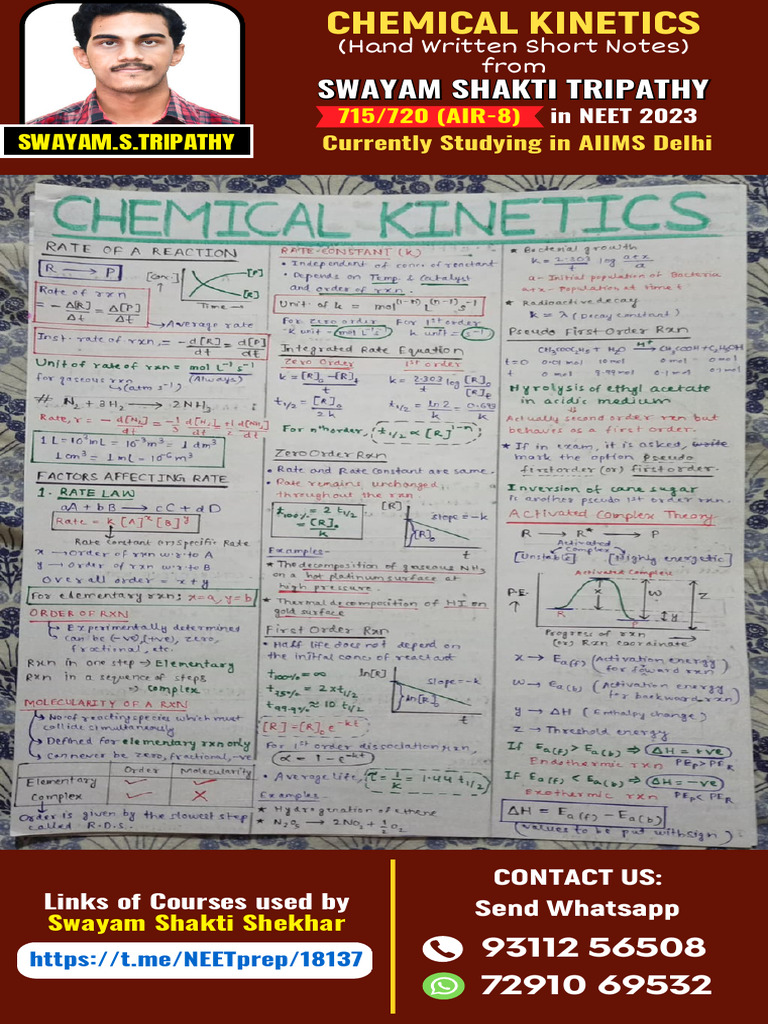 CHEMICAL KINETICS
(Hand Written Short Notes)
from
SWAYAM SHAKTI TRIPATHY
715/720 (AIR-8) in NEET 2023
Currently Studying in AIIMS Delhi
SWAYAM.S.TRIPATHY
CHEMICAL KINETICS
RATE OF A REACTION
R → P
[Conc.]↑
[P]
[R]
Time →
Rate of rxn
= -Δ[R]/Δt = Δ[P]/Δt
→ Average rate
Inst. rate of rxn, = -d[R]/dt = d[P]/dt
Unit of rate of rxn = mol L⁻¹ s⁻¹
(Always)
for gaseous rxn → (atm s⁻¹)
# N₂ + 3H₂ → 2NH₃
Rate, r = -d[N₂]/dt = -1/3 d[H₂]/dt = +1/2 d[NH₃]/dt
1 L = 10³ mL = 10⁻³ m³ = 1 dm³
1 cm³ = 1 mL = 10⁻⁶ m³
FACTORS AFFECTING RATE
1. RATE LAW
aA + bB → cC + dD
Rate = k [A]ˣ [B]ʸ
→ Rate constant or Specific Rate
x → Order of rxn w.r.to A
y → Order of rxn w.r.to B
Overall order = x + y
For elementary rxn; x = a, y = b
ORDER OF RXN
→ Experimentally determined
can be (-ve), (+ve), zero,
fractional, etc.
Rxn in one step → Elementary
Rxn in a sequence of steps
→ Complex
MOLECULARITY OF A RXN
→ No. of reacting species which must
collide simultaneously
→ Defined for elementary rxn only
→ Can never be zero, fractional, -ve
Order Molecularity
Elementary ✓ ✓
Complex ✓ ✗
Order is given by the slowest step
called R.D.S.
RATE CONSTANT (k)
• Independent of conc. of reactant
• Depends on Temp. & Catalyst
and order of rxn.
Unit of k = mol⁽¹⁻ⁿ⁾ L⁽ⁿ⁻¹⁾ s⁻¹
For zero order For 1st order
k unit = mol L⁻¹ s⁻¹ k unit = s⁻¹
Integrated Rate Equation
Zero Order 1st order
k = [R]₀ - [R]t / t k = 2.303/t log [R]₀/[R]t
t₁/₂ = [R]₀/2k t₁/₂ = ln 2/k = 0.693/k
For nth order, t₁/₂ ∝ [R]¹⁻ⁿ
Zero Order Rxn
• Rate and Rate Constant are same.
• Rate remains unchanged
throughout the rxn
t100% = 2 t₁/₂
= [R]₀/k
[R]
[R]₀
slope = -k
t
Examples-
★ The decomposition of gaseous NH₃
on a hot platinum surface at
high pressure.
★ Thermal decomposition of HI on
gold surface
First Order Rxn
• Half life does not depend on
the initial conc of reactant
t100% = ∞
t75% = 2 x t₁/₂
t99.9% ≈ 10 t₁/₂
ln[R]
ln[R]₀
slope = -k
t
[R] = [R]₀ e⁻ᵏᵗ
For 1st order dissociation rxn,
α = 1 - e⁻ᵏᵗ
• Average life, τ = 1/k = 1.44 t₁/₂
Examples-
★ Hydrogenation of ethene
★ N₂O₅ → 2NO₂ + 1/2 O₂
★ Bacterial growth
k = 2.303/t log a+x/a
a - Initial population of Bacteria
a+x - Population at time t
★ Radioactive decay
k = λ (Decay constant)
Pseudo First Order Rxn
CH₃COOC₂H₅ + H₂O H⁺→ CH₃COOH + C₂H₅OH
t=0 0.01 mol 10 mol 0 mol 0 mol
Hyrolysis of ethyl acetate
in acidic medium
Actually second order rxn but
behaves as a first order.
★ If in exam, it is asked,
mark the option pseudo
first order (or) first order.
Inversion of cane sugar
is another pseudo 1st order rxn.
Activated Complex Theory
R → R* → P
Activated
Complex
[Unstable] [Highly energetic]
Activated Complex
P.E.
R x w z y P
Progress of rxn
(or) Rxn coordinate
x → Ea(f) (Activation energy
for forward rxn)
w → Ea(b) (Activation energy
for backward rxn)
y → ΔH (Enthalpy change)
z → Threshold energy
If Ea(f) > Ea(b) ⇒ ΔH = +ve
Endothermic rxn PEp > PER
If Ea(f) < Ea(b) ⇒ ΔH = -ve
Exothermic rxn PEp < PER
ΔH = Ea(f) - Ea(b)
(values to be put with sign)
Links of Courses used by
Swayam Shakti Shekhar
https://t.me/NEETprep/18137
CONTACT US:
Send Whatsapp
93112 56508
72910 69532